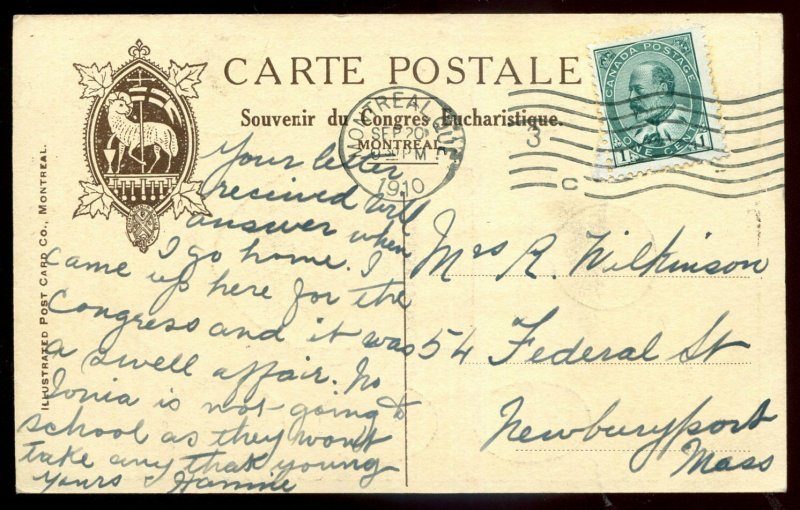 CARTE POSTALE
Souvenir du Congres Eucharistique.
MONTREAL
MONTREAL QUE
SEP 20
PM
1910
3
C
CANADA POSTAGE
1 ONE CENT 1
ILLUSTRATED POST CARD CO., MONTREAL.
Your letter
recieved will
answer when
I go home. I
came up here for the
Congress and it was
a swell affair. No
Ionia is not going to
school as they won't
take any that young
Yours
Mrs R. Wilkinson
54 Federal St
Newburyport
Mass